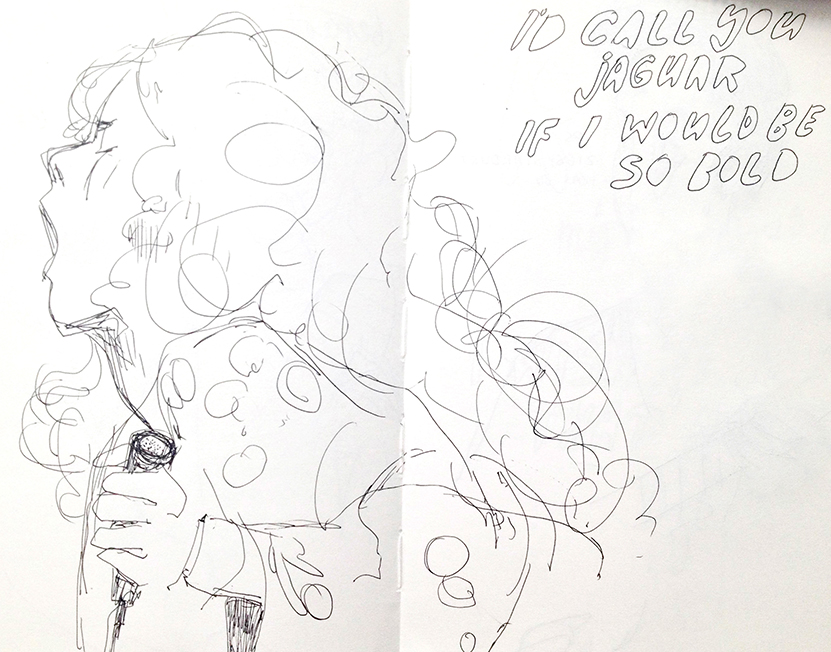 I'D CALL YOU
JAGUAR
IF I WOULD BE
SO BOLD